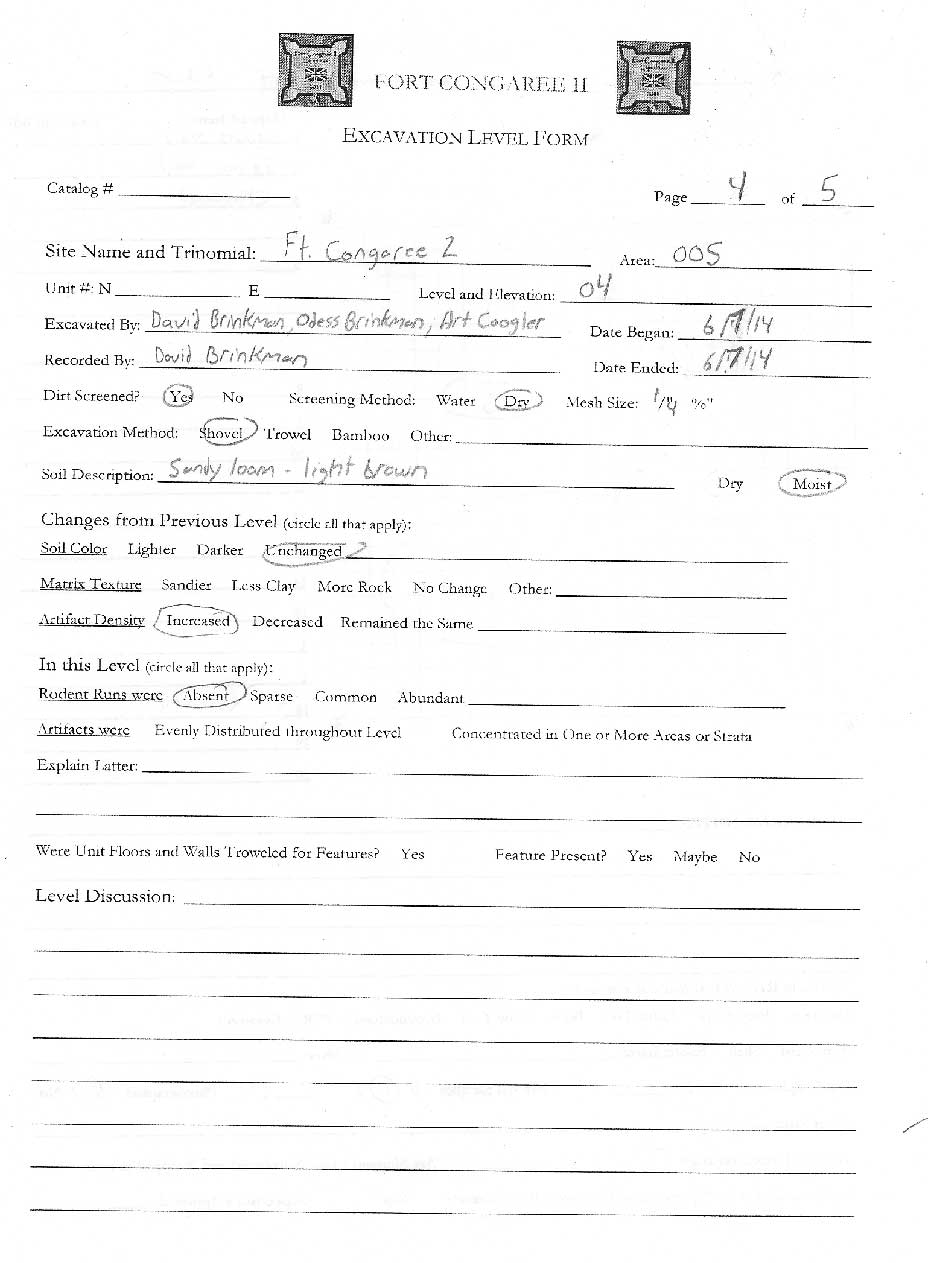 FORT CONGAREE II
EXCAVATION LEVEL FORM
Catalog # Page 4 of 5
Site Name and Trinomial: Ft. Congaree 2 Area: 005
Unit #: N E Level and Elevation: 04
Excavated By: David Brinkman, Odess Brinkman, Art Coogler Date Began: 6/7/14
Recorded By: David Brinkman Date Ended: 6/7/14
Dirt Screened? Yes No Screening Method: Water Dry Mesh Size: 1/4
Excavation Method: Shovel Trowel Bamboo Other:
Soil Description: Sandy loam - light brown Dry Moist
Changes from Previous Level (circle all that apply):
Soil Color Lighter Darker Unchanged
Matrix Texture Sandier Less Clay More Rock No Change Other:
Artifact Density Increased Decreased Remained the Same
In this Level (circle all that apply):
Rodent Runs were Absent Sparse Common Abundant
Artifacts were Evenly Distributed throughout Level Concentrated in One or More Areas or Strata
Explain Latter:
Were Unit Floors and Walls Troweled for Features? Yes Feature Present? Yes Maybe No
Level Discussion: